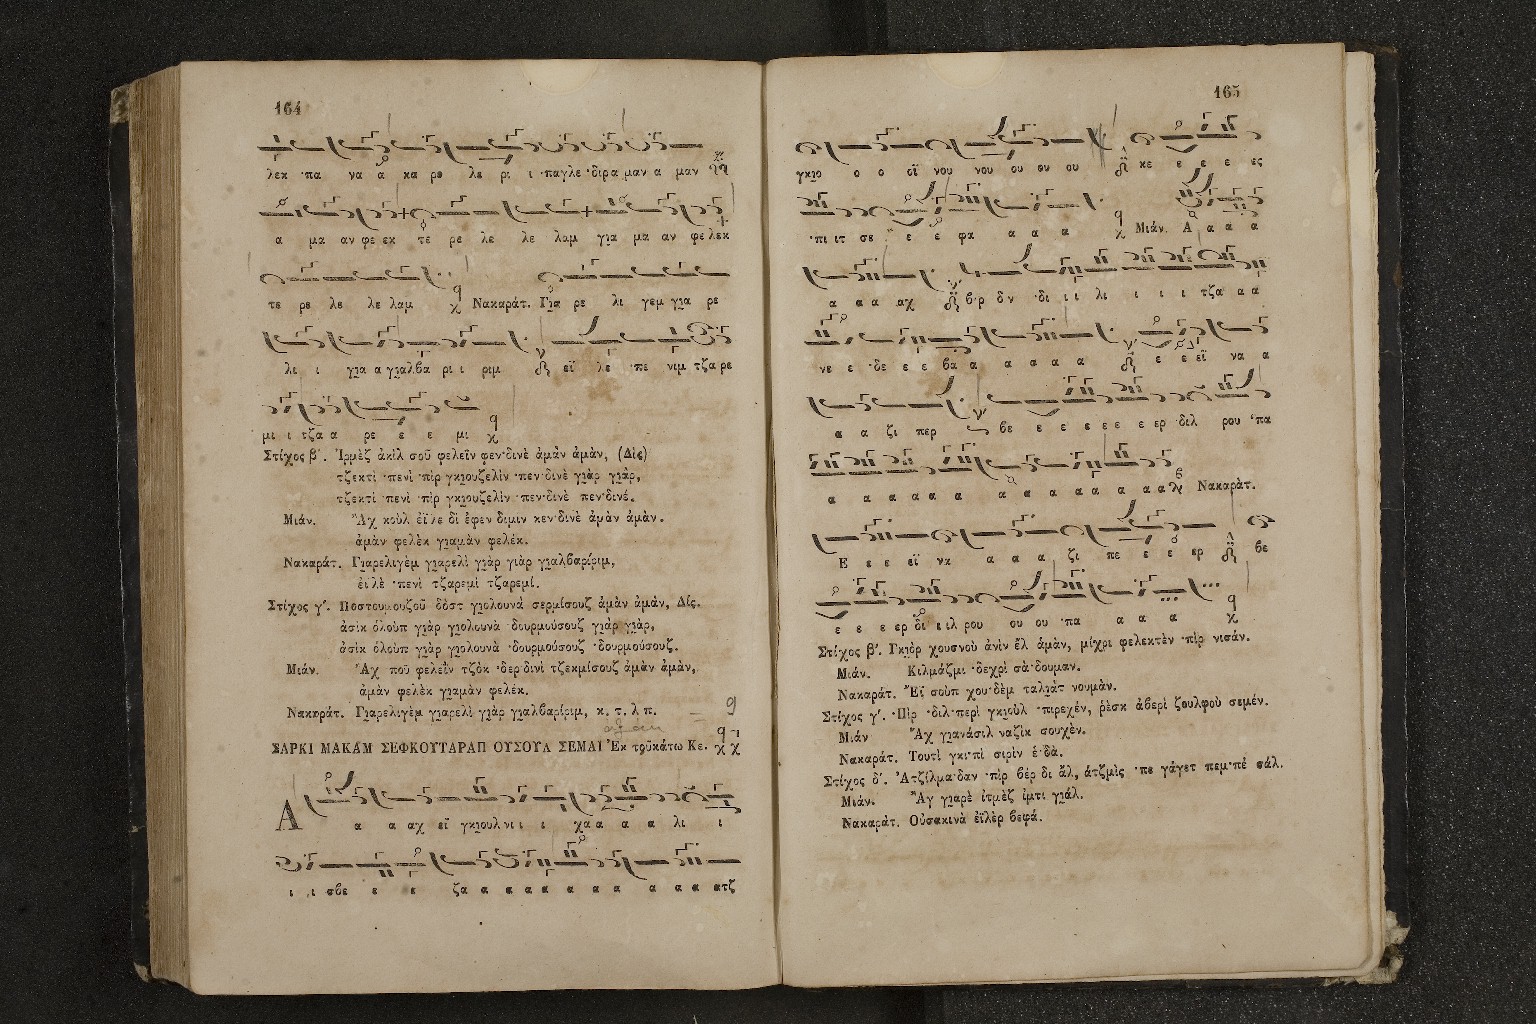 164
λεκ ·πα να α κα ρε λε ρι ι ·παγλε ·διρα μαν α μαν
α μα αν φε εκ τε ρε λε λε λαμ για μα αν φε λεκ
τε ρε λε λε λαμ Νακαράτ. Για ρε λι γεμ για ρε
λε ι για α γιαλβα ρι ι ριμ εϊ λε ·πε νιμ τζα ρε
μι ι τζα α ρε ε ε μι
Στίχος β΄. Ἰρμὲζ ἀκὶλ σοῦ φελεῒν φεν·δινὲ ἀμὰν ἀμὰν, (Δὶς)
τζεκτὶ ·πενὶ ·πὶρ γκιουζελὶν ·πεν·δινὲ γιὰρ γιὰρ,
τζεκτὶ ·πενὶ ·πὶρ γκιουζελὶν ·πεν·δινὲ πεν·δινέ.
Μιάν. Ἂχ κοὺλ ἐϊλε δὶ ἐφεν διμιν κεν·δινὲ ἀμὰν ἀμὰν.
ἀμὰν φελὲκ γιαμὰν φελέκ.
Νακαράτ. Γιαρελιγὲμ γιαρελὶ γιὰρ γιὰρ γιαλβαρίριμ,
ἐϊλὲ ·πενὶ τζαρεμὶ τζαρεμί.
Στίχος γ΄. Ποστουμουζοῦ δὸστ γιολουνὰ σερμίσουζ ἀμὰν ἀμὰν, Δίς.
ἀσὶκ ὀλοὺπ γιὰρ γιολουνὰ ·δουρμούσουζ γιὰρ γιὰρ,
ἀσὶκ ὀλοὺπ γιὰρ γιολουνὰ ·δουρμούσουζ ·δουρμούσουζ.
Μιάν. Ἂχ ποῦ φελεῒν τζὸκ ·δερ·δινὶ τζεκμίσουζ ἀμὰν ἀμὰν,
ἀμὰν φελὲκ γιαμὰν φελέκ.
Νακαράτ. Γιαρελιγὲμ γιαρελὶ γιὰρ γιαλβαρίριμ, κ. τ. λ π.
ΣΑΡΚΙ ΜΑΚΑΜ ΣΕΦΚΟΥΤΑΡΑΠ ΟΥΣΟΥΛ ΣΕΜΑΙ Ἐκ τοῦκάτω Κε.
Α α α αχ εϊ γκιουλ νι ι ι χα α α α λι ι
ι ι σβε ε ε ζα α α α α α α α α α α ατζ
165
γκιο ο ο οϊ νου νου ου ου ου κε ε ε ε ες
·πι ιτ σε ε ε φα α α α Μιάν. Α α α α
α α α αχ β·ρ δν ·δι ι ι λι ι ι ι τζα α α
νε ε ·δε ε ε βα α α α α α ε ε εϊ να α
α α ζι περ βε ε ε ε ε ε ε ερ ·διλ ρου ·πα
α α α α α α α α α α α α α α Νακαράτ.
Ε ε ε εϊ να α α α ζι πε ε ε ερ βε
ε ε ε ερ δι ι ιλ ρου ου ου ·πα α α α
Στίχος β΄. Γκιὸρ χουσνοὺ ἀνὶν ἒλ ἀμὰν, μίχρι φελεκτὲν ·πὶρ νισάν.
Μιάν. Κιλμάζμι ·δεχρὶ σὰ·δουμαν.
Νακαράτ. Ἒϊ σοὺπ χου·δὲμ ταλιὰτ νουμὰν.
Στίχος γ΄. ·Πὶρ ·διλ·περὶ γκιοὺλ ·πιρεχέν, ῥὲσκ ἀβερὶ ζουλφοὺ σεμέν.
Μιάν Ἂχ γιανάσιλ ναζὶκ σουχὲν.
Νακαράτ. Τουτὶ γκι·πὶ σιρὶν ἐ·δὰ.
Στίχος δ΄. Ἀτζίλμα·δαν ·πὶρ βέρ δι ἂλ, ἀτζμὶς ·πε γάγετ πεμ·πὲ σάλ.
Μιάν. Ἂγ γιαρὲ ἰτμὲζ ἰμτι γιάλ.
Νακαράτ. Οὐσακινὰ ἐϊλὲρ βεφά.